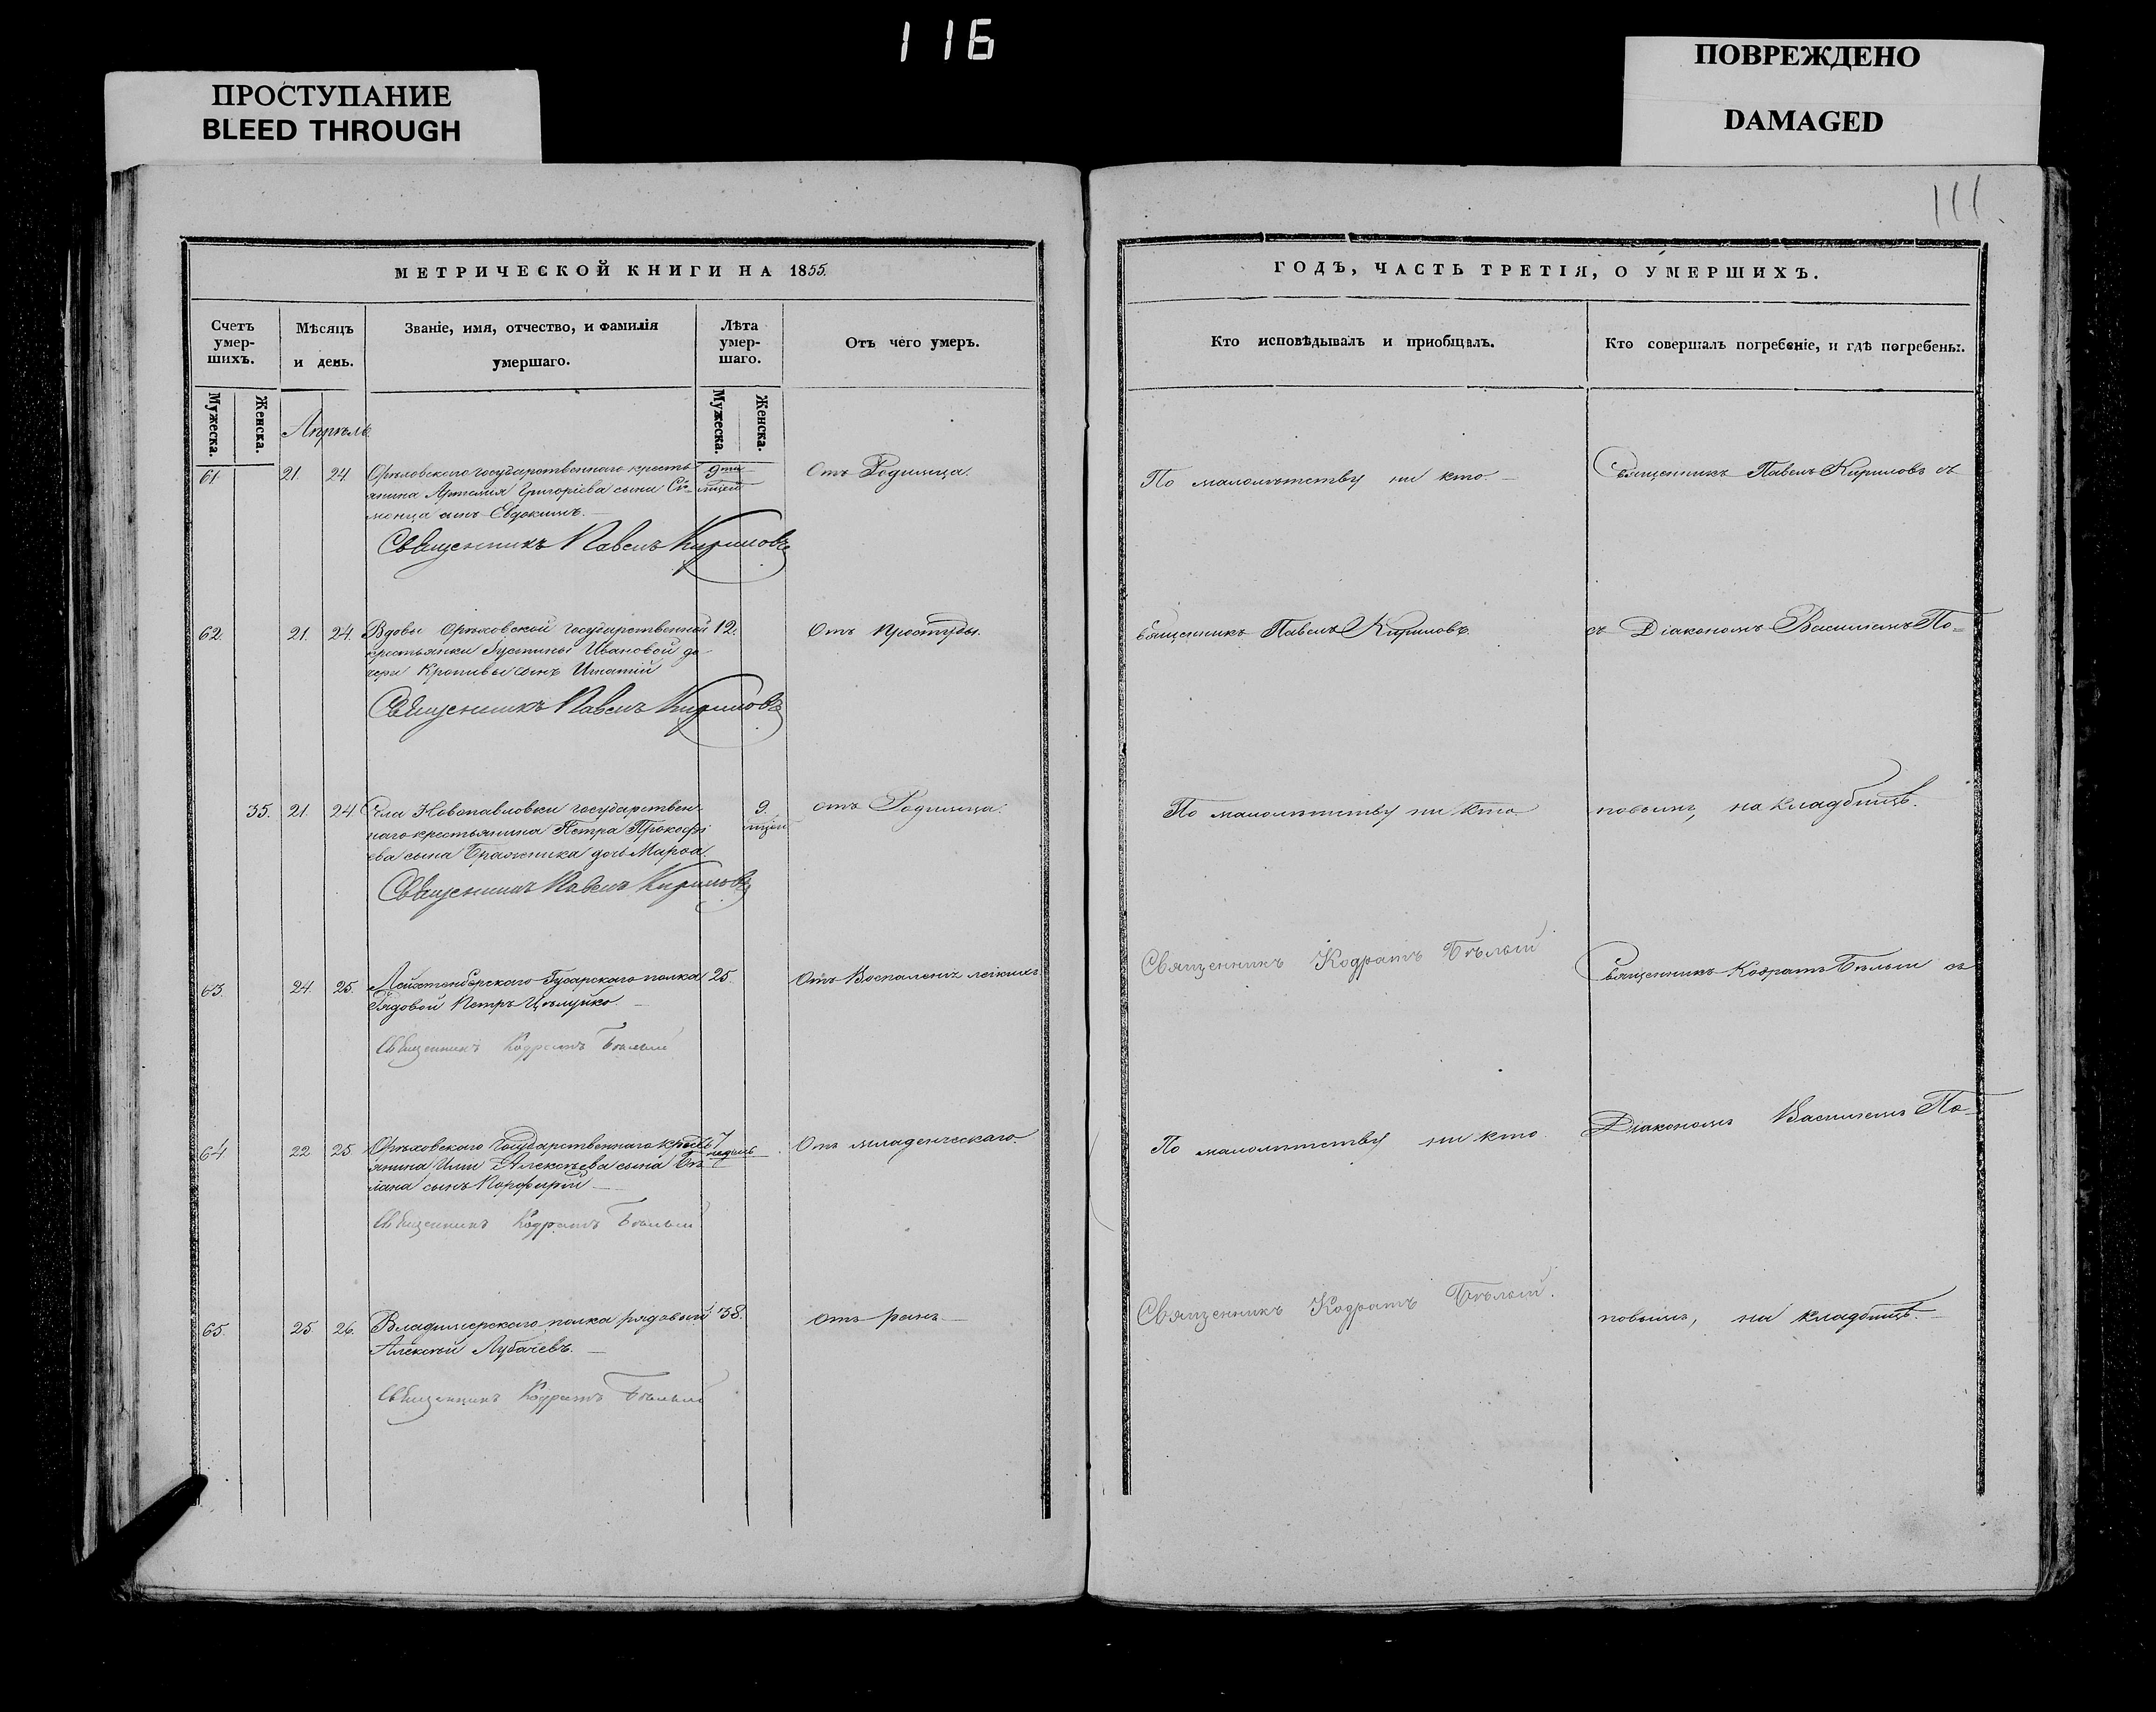 116
ПРОСТУПАНИЕ
BLEED THROUGH
ПОВРЕЖДЕНО
DAMAGED
111.
МЕТРИЧЕСКОЙ КНИГИ НА 1855.
Счетъ умер-шихъ.
Мѣсяцъ и день.
Званіе, имя, отчество, и фамилія умершаго.
Лѣта умер-шаго.
Отъ чего умеръ.
Мужеска.
Женска.
Мужеска.
Женска.
Апрѣль
61. 21. 24. Орѣховскаго государственнаго кресть 9ти Отъ Родимца.
янина Артемія Григоріева сына Си-
монца сынъ Евдокимъ.
Священникъ Павелъ Кириловъ
62. 21. 24. Вдовы Орѣховской государственной 12. Отъ Простуды.
крестьянки Іустины Ивановой до-
чери Кропивы сынъ Игнатій
Священникъ Павелъ Кириловъ
35. 21. 24. Села Новопавловки государствен- 9. отъ Родимца.
наго крестьянина Петра Прокофі
ева сына Бражника дочь Марѳа.
Священникъ Павелъ Кириловъ
63. 24. 25. Лейхтенбергскаго Гусарскаго полка 25. Отъ Воспаленія легкихъ
Рядовой Петръ
Священникъ Кодратъ Бѣлый
64. 22 25 Орѣховскаго Государственнаго кресть 7 Отъ младенческаго.
янина Иліи Алексѣева сына недель
сынъ Порфирій
Священникъ Кодратъ Бѣлый
65. 25 26. Владимерскаго полка рядовый 38. отъ ранъ.
Алексѣй Лубачевъ.
Священникъ Кодратъ Бѣлый
ГОДЪ, ЧАСТЬ ТРЕТІЯ, О УМЕРШИХЪ.
Кто исповѣдывалъ и приобщалъ.
Кто совершалъ погребеніе, и гдѣ погребены.
По малолѣтству ни кто.
Священникъ Павелъ Кириловъ съ
Священникъ Павелъ Кириловъ.
съ Діакономъ Василіемъ По-
По малолѣтству ни кто
повымъ, на кладбищѣ.
Священникъ Кодратъ Бѣлый
Священникъ Кодратъ Бѣлый съ
По малолѣтству ни кто
Діакономъ Василіемъ По-
Священникъ Кодратъ Бѣлый.
повымъ, на кладбищѣ.